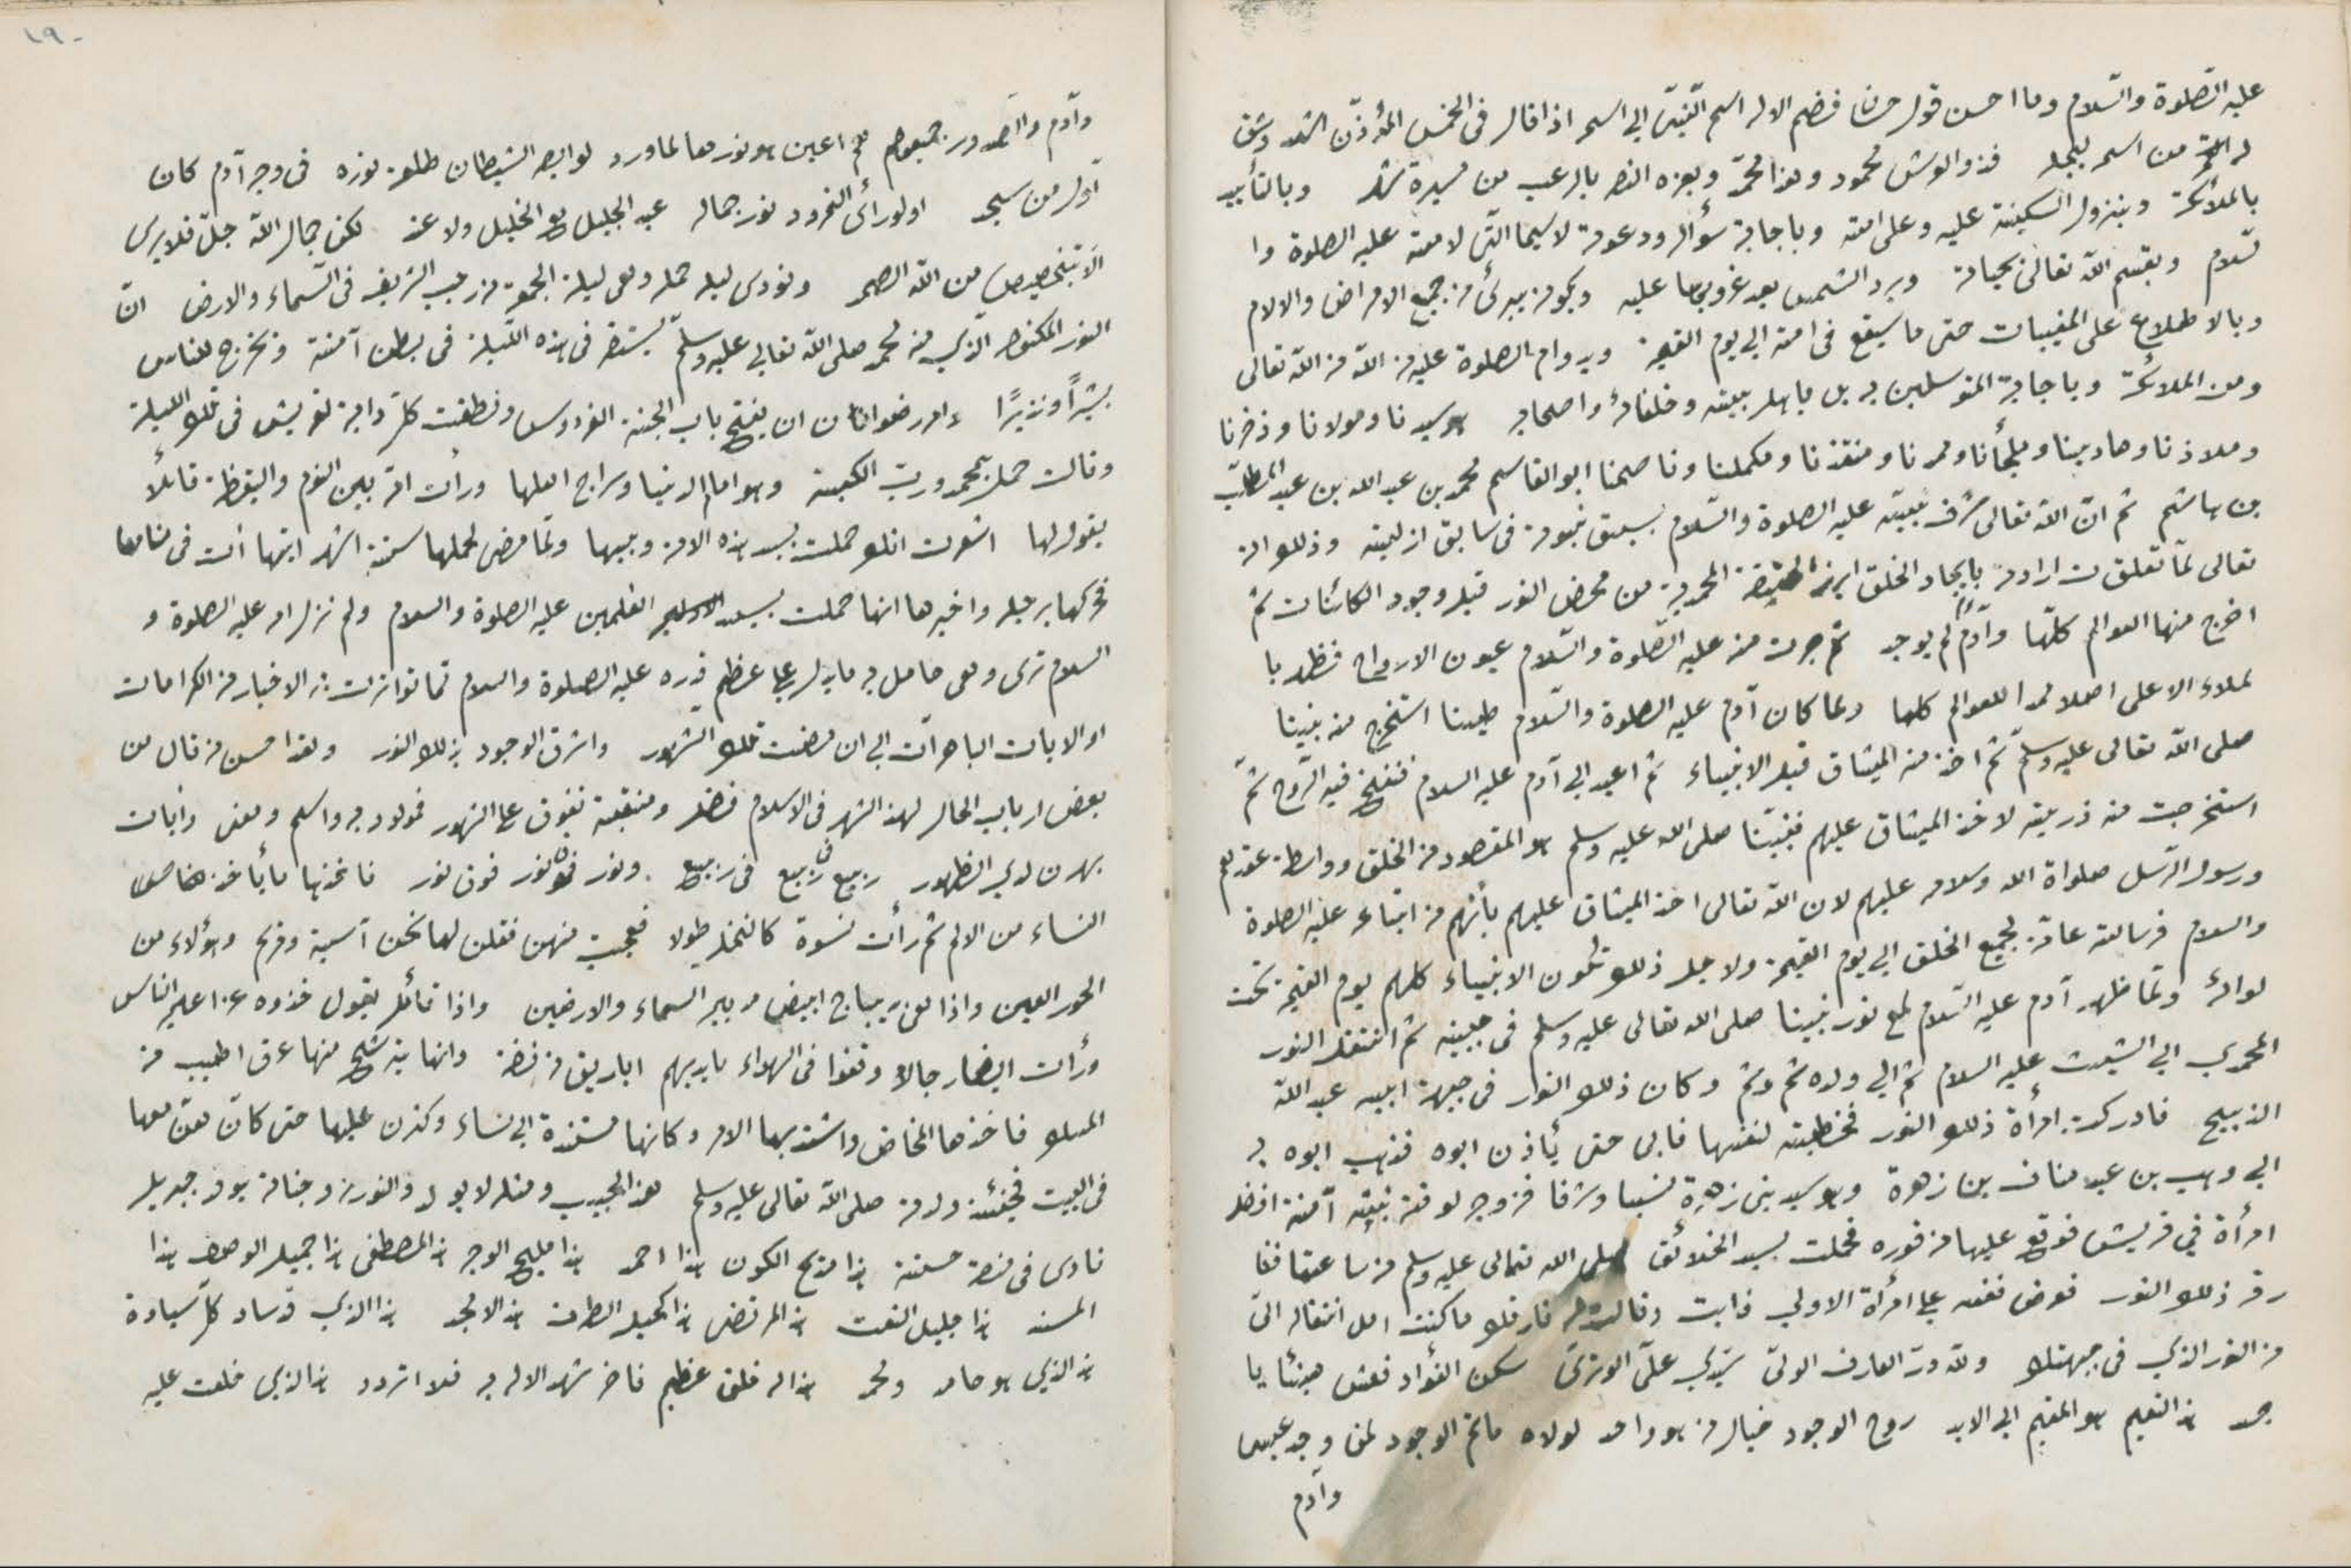 عليه الصّلوة والسّلام وما احسن قول حسان فضم الاله اسم النّبيّ الى اسمه اذا قال فى الخمس المؤذّن اشهد وشق
له من اسمه ليجله فذو العرش محمود وهذا محمّد وبعزه النصر بالرعب من مسيرة شهر وبالتأييد
بالملائكة وبنزول السكينة عليه وعلى امته وباجابة سؤاله ودعوته لا سيما الّتى لامته عليه الصلوة وا
لسّلام وبقسم الله تعالى بحياته وبرد الشمس بعد غروبها عليه من جميع الامراض والالام
وبالاطلاع على المغيبات حتى ما سيقع فى امته الى يوم القيمة وبدوام الصلوة عليه من الله تعالى
ومن الملائكة وباجابة المتوسلين به بل باهل بيته وخلفائه واصحابه هو سيدنا ومولانا وذخرنا
وملاذنا وهادينا وملجأنا وممدنا ومنقذنا ومكملنا وناصحنا ابو القاسم محمد بن عبد الله بن عبد المطلب
بن هاشم ثم انّ الله تعالى شرّف نبيّه عليه الصلوة والسّلام بسبق نبوته فى سابق ازليته وذلك انه
تعالى لمّا تعلقت ارادته بايجاد الخلق ابرز الحقيقة المحمدية من محض النور قبل وجود الكائنات ثم
اخرج منها العوالم كلّها وآدم لم يوجد ثم انبجست منه عليه الصّلوة والسّلام عيون الارواح فظهر با
لملاء الاعلى اصلا ممدا للعوالم كلها ولما كان آدم عليه الصلوة والسّلام طينا استخرج منه نبينا
صلى الله تعالى عليه وسلّم ثم اخذ منه الميثاق قبل الانبياء ثم اعيد الى آدم عليه السلام فنفخ فيه الرّوح ثمّ
استخرجت منه ذريته لاخذ الميثاق عليهم فنبيّنا صلى الله عليه وسلم هو المقصود من الخلق وواسطة عقدهم
ورسول الرّسل صلواة الله وسلامه عليهم لان الله تعالى اخذ الميثاق عليهم بأنهم من اتباعه عليه الصلوة
والسلام فرسالته عامّة لجميع الخلق الى يوم القيمة ولاجل ذلك تكون الانبياء كلهم يوم القيمة تحت
لوائه ولمّا ظهر آدم عليه السّلام لمع نور نبينا صلى الله تعالى عليه وسلم فى جبينه ثم انتقل النور
المحمدي الى الشيث عليه السلام ثم الى ولده ثم وثم وكان ذلك النور فى جبهة ابيه عبد الله
الذبيح فادركت امرأة ذلك النور فخطبته لنفسها فابى حتى يأذن ابوه فذهب ابوه به
الى وهب بن عبد مناف بن زهرة وهو سيد بنى زهرة نسبا وشرفا فزوجه لوقته بنيّته آمنة افضل
امرأة في قريش فوقع عليها من فوره فحملت بسيد الخلائق صلى الله تعالى عليه وسلم من ساعتها ففا
رقه ذلك النور فعرض نفسه على امرأة الاولى فابت وقالت له فارقك ما كنت امل انتقاله الىّ
من النور الذي فى جبهتك ولله درّ العارف الولىّ سيّدي علىّ سكن الفؤاد فعش هنيئا يا
جسد هذا النعيم هو المقيم الى الابد روح الوجود خيال من هو واحد لولاه ما تم الوجود لمن وجد عيسى
وآدم
وآدم والصدور جميعهم هم اعين هو نورها لما ورد لو ابصر الشيطان طلعة نوره فى وجه آدم كان
اول من سجد او لو رأى النمرود نور جماله عبد الجليل مع الخليل ولا عند لكن جمال الله جلّ فلا يرى
الا بتخصيص من الله الصمد ونودى ليلة حمله وهى ليلة الجمعة من رجب الشريف فى السّماء والارض انّ
النور المكنون الّذي منه محمد صلى الله تعالى عليه وسلّم يستقر فى هذه اللّيلة فى بطن آمنة ويخرج للناس
بشيراً ونذيرًا وامر رضوان ان يفتح باب الجنة الفردوس ونطقت كل دابة لقريش فى تلك الليلة
وقالت حمل بمحمد وربّ الكعبة وهو امام الدنيا وسراج اهلها ورأت امه بين النوم واليقظة قائلاً
يقول لها اشعرت انك حملت بسيد هذه الامة ونبيها ولمّا مضى لحملها ستة اشهر اتاها آت فى منامها
فحركها برجله واخبرها انها حملت بسيد العلمين عليه الصلوة والسلام ولم تزل امه عليه الصلوة و
السلام ترى وهى حامل به ما يدل على عظم قدره عليه الصلوة والسلام مما تواترت به الاخبار من الكرامات
او الايات الباهرات الى ان مضت تلك الشّهور واشرق الوجود بذلك النور ولقد احسن من قال من
بعض ارباب الحال لهذا الشهر فى الاسلام فضل ومنقبة تفوق على الشهور فمولود به واسم ومعنى وايات
بهرن لدي الظهور ربيع فى ربيع فى ربيع ونور فوق نور فوق نور فاخذها ما يأخذ
النساء من الالم ثم رأت نسوة كالنخل طولا فعجبت منهن فقلن لها نحن آسية ومريم وهؤلاء من
الحور العين واذا هى بديباج ابيض مد بين السماء والارضين واذا قائل يقول خذوه عن اعين الناس
ورأت ايضا رجالا وقفوا فى الهواء بايديهم اباريق من فضة وانها يترشح منها عرق اطيب من
المسك فاخذها المخاض واشتد بها الامر وكانها مستندة الى نساء وكثرن عليها حتى كأن معها
فى البيت فحينئذ ولدته صلى الله تعالى عليه وسلم هذا الحبيب ومثله لا يولد والنور من وجناته يوقد جبريل
نادى فى منصة حسنة هذا مديح الكون هذا احمد هذا مليح الوجه هذا المصطفى هذا جميل الوصف هذا
المسند هذا جليل النعت هذا المرتضى هذا كحيل الطرف هذا الامجد هذا الذي قد ساد كل سيادة
هذا الذي هو حامد ومحمد هذا له خلق عظيم فاخر شهد الاله به فلا تردد هذا الذي خلعت عليه